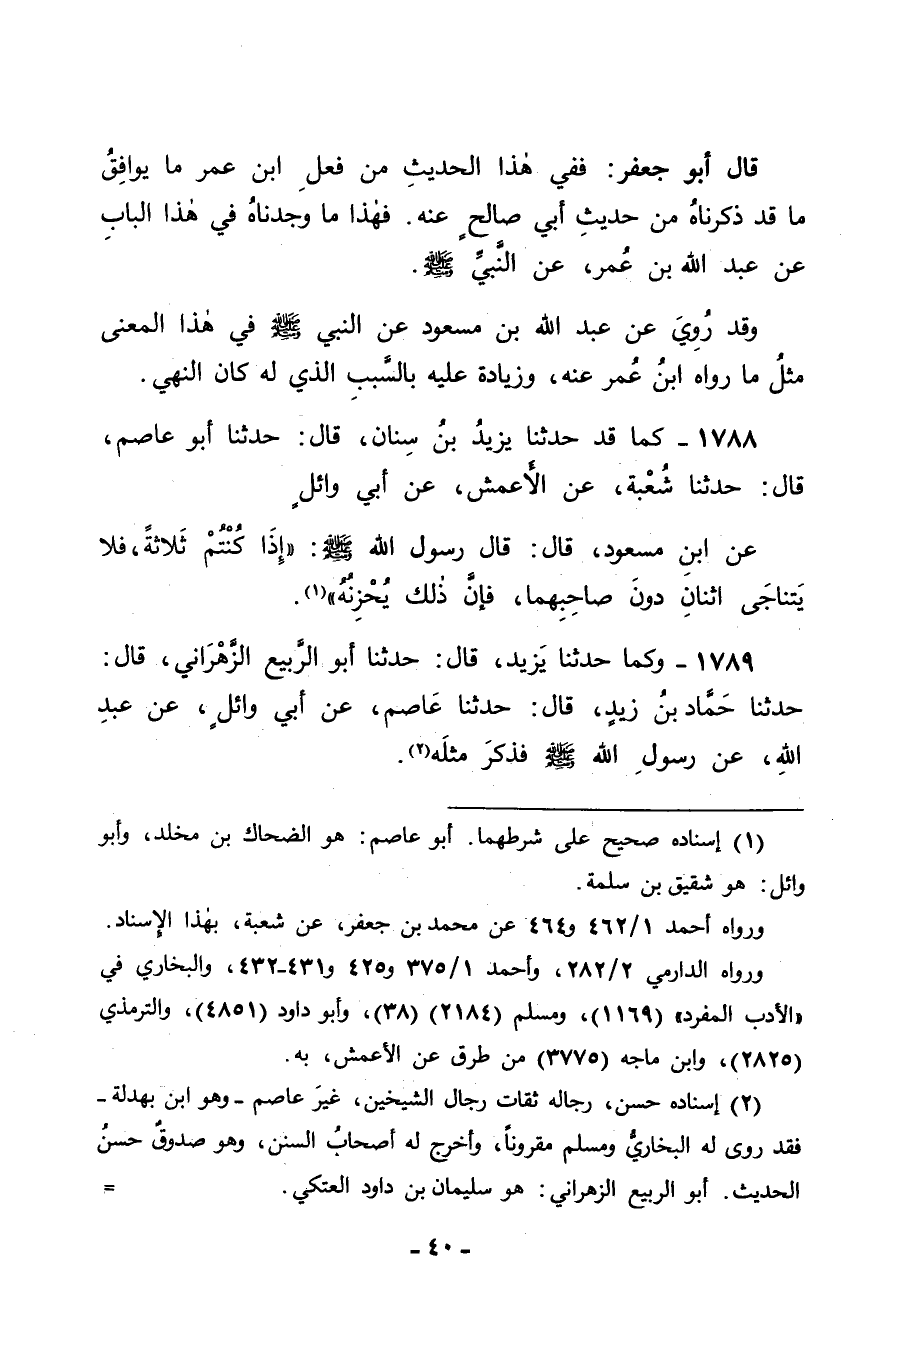 قال أبو جعفر: ففي هٰذا الحديثِ من فعلِ ابن عمر ما يوافِقُ
ما قد ذكرناهُ من حديثِ أبي صالحٍ عنه. فهٰذا ما وجدناهُ في هٰذا البابِ
عن عبد الله بن عُمر، عن النَّبيِّ ﷺ.
وقد رُوِيَ عن عبد الله بن مسعود عن النبي ﷺ في هٰذا المعنى
مثلُ ما رواه ابنُ عُمر عنه، وزيادة عليه بالسَّببِ الذي له كان النهي.
١٧٨٨ - كما قد حدثنا يزيدُ بنُ سِنان، قال: حدثنا أبو عاصم،
قال: حدثنا شُعْبة، عن الأَعمش، عن أبي وائلٍ
عن ابنِ مسعود، قال: قال رسول الله ﷺ: «إِذَا كُنْتُمْ ثَلاثةً، فلا
يَتناجَى اثنانِ دونَ صاحِبِهما، فإنَّ ذٰلك يُحْزِنُهُ»(١).
١٧٨٩ - وكما حدثنا يَزيد، قال: حدثنا أبو الرَّبيع الزَّهْرَاني، قال:
حدثنا حَمَّاد بنُ زيدٍ، قال: حدثنا عَاصم، عن أبي وائلٍ، عن عبدِ
اللهِ، عن رسولِ الله ﷺ فذكرَ مثلَه(٢).
(١) إسناده صحيح على شرطهما. أبو عاصم: هو الضحاك بن مخلد، وأبو
وائل: هو شقيق بن سلمة.
ورواه أحمد ٤٦٢/١ و٤٦٤ عن محمد بن جعفر، عن شعبة، بهٰذا الإسناد.
ورواه الدارمي ٢٨٢/٢، وأحمد ٣٧٥/١ و٤٢٥ و٤٣١-٤٣٢، والبخاري في
«الأدب المفرد» (١١٦٩)، ومسلم (٢١٨٤) (٣٨)، وأبو داود (٤٨٥١)، والترمذي
(٢٨٢٥)، وابن ماجه (٣٧٧٥) من طرق عن الأعمش، به.
(٢) إسناده حسن، رجاله ثقات رجال الشيخين، غيرَ عاصم - وهو ابن بهدلة -
فقد روى له البخاريُّ ومسلم مقروناً، وأخرج له أصحابُ السنن، وهو صدوقٌ حسنُ
الحديث. أبو الربيع الزهراني: هو سليمان بن داود العتكي. =
- ٤٠ -